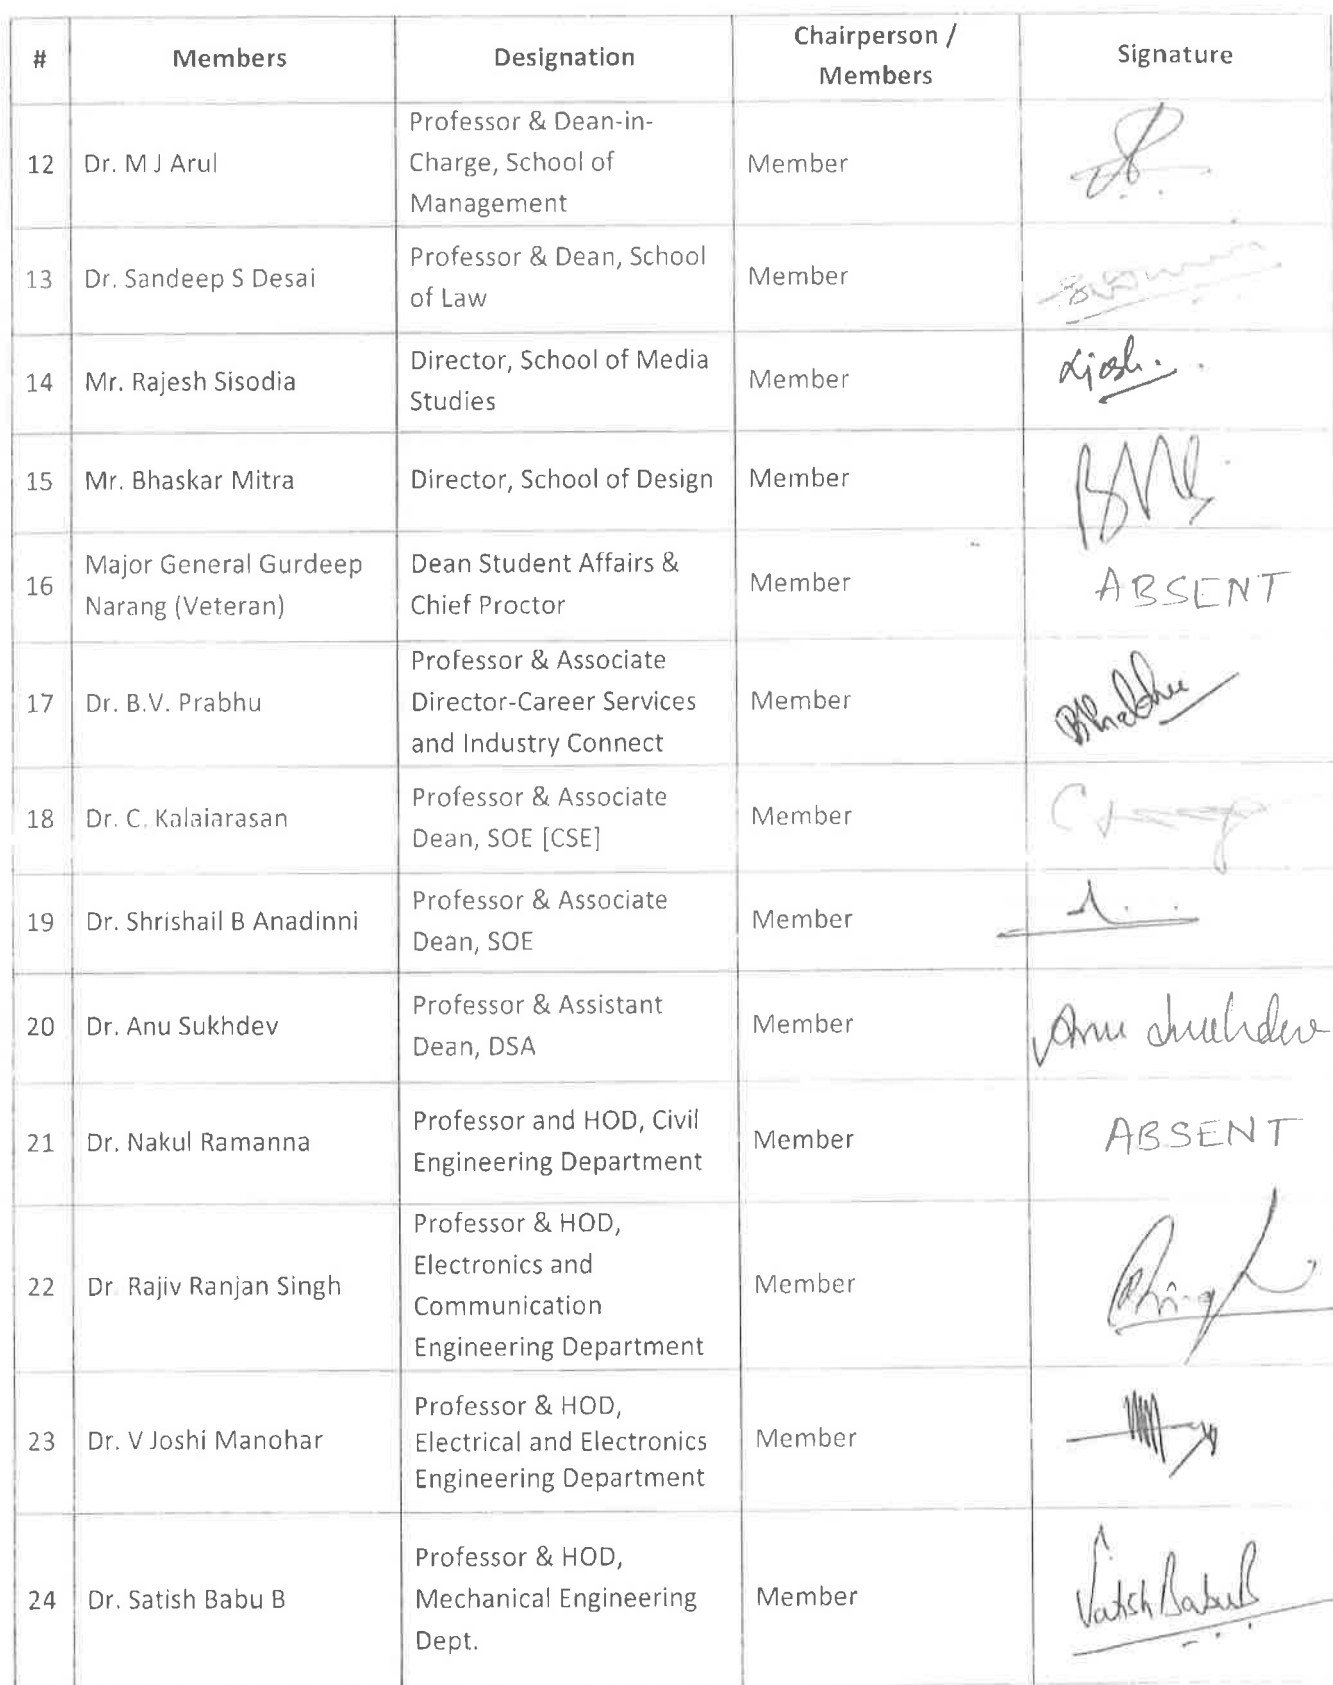 #
Members
Designation
Chairperson /
Members
Signature
12
Dr. M J Arul
Professor & Dean-in-
Charge, School of
Management
Member
13
Dr. Sandeep S Desai
Professor & Dean, School
of Law
Member
14
Mr. Rajesh Sisodia
Director, School of Media
Studies
Member
15
Mr. Bhaskar Mitra
Director, School of Design
Member
16
Major General Gurdeep
Narang (Veteran)
Dean Student Affairs &
Chief Proctor
Member
ABSENT
17
Dr. B.V. Prabhu
Professor & Associate
Director-Career Services
and Industry Connect
Member
18
Dr. C. Kalaiarasan
Professor & Associate
Dean, SOE [CSE]
Member
19
Dr. Shrishail B Anadinni
Professor & Associate
Dean, SOE
Member
20
Dr. Anu Sukhdev
Professor & Assistant
Dean, DSA
Member
Anu Sukhdev
21
Dr. Nakul Ramanna
Professor and HOD, Civil
Engineering Department
Member
ABSENT
22
Dr. Rajiv Ranjan Singh
Professor & HOD,
Electronics and
Communication
Engineering Department
Member
23
Dr. V Joshi Manohar
Professor & HOD,
Electrical and Electronics
Engineering Department
Member
24
Dr. Satish Babu B
Professor & HOD,
Mechanical Engineering
Dept.
Member
Satish Babu B